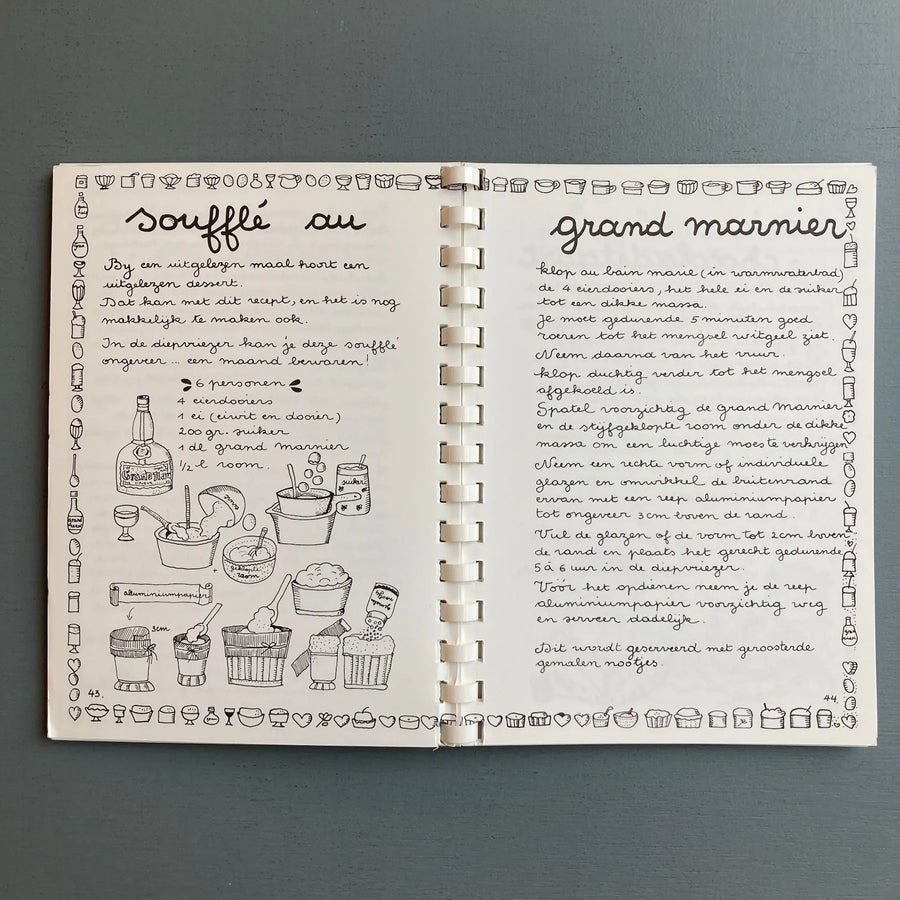 soufflé au
By een uitgelezen maal hoort een
uitgelezen dessert.
Dat kan met dit recept, en het is nog
makkelijk te maken ook.
In de diepvriezer kan je deze soufflé
ongeveer ... een maand bewaren!
6 personen
4 eierdooiers
1 ei (eiwit en dooier)
200 gr. suiker
1 dl grand marnier
1/2 l room.
suiker
geklopte room
aluminiumpapier
3cm
43.
grand marnier
klop au bain marie (in warmwaterbad)
de 4 eierdooiers, het hele ei en de suiker
tot een dikke massa.
Je moet gedurende 5 minuten goed
roeren tot het mengsel witgeel ziet.
Neem daarna van het vuur.
klop duchtig verder tot het mengsel
afgekoeld is.
Spatel voorzichtig de grand Marnier
en de stijfgeklopte room onder de dikke
massa om een luchtige moes te verkrijgen
Neem een rechte vorm of individuele
glazen en omwikkel de buitenrand
ervan met een reep aluminiumpapier
tot ongeveer 3cm boven de rand.
Vul de glazen of de vorm tot 2cm boven
de rand en plaats het gerecht gedurende
5 à 6 uur in de diepvriezer.
Vóór het opdienen neem je de reep
aluminiumpapier voorzichtig weg
en serveer dadelijk.
Dit wordt geserveerd met geroosterde
gemalen nootjes.
44.